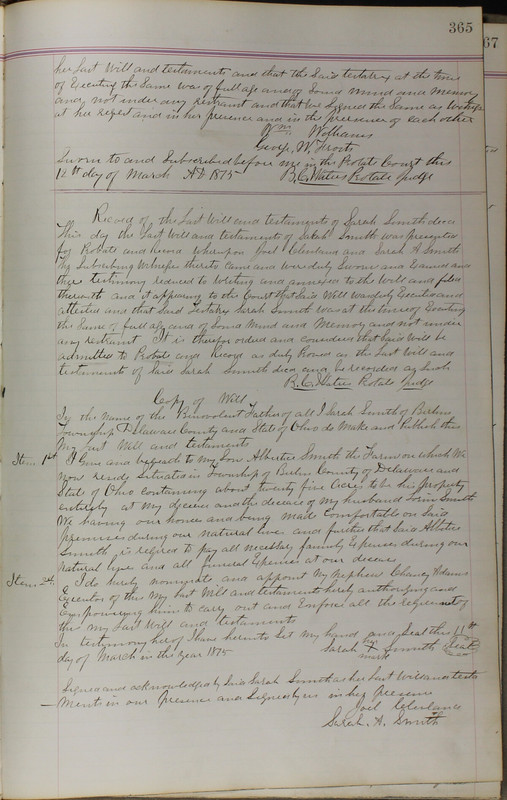 365
67
her Last Will and testaments and that the Said testatrix at the time
of Executing the Same was of full age and of Sound Mind and Memory
and not under any restraint and that we Signed the Same as Witnesses
at her request and in her presence and in the presence of each other
Wm
George W.
Sworn to and Subscribed before me in the Probate Court this
12th day of March AD 1875 B.C. Waters Probate Judge
Record of the Last Will and testaments of Sarah Smith decd
This day the Last Will and testaments of Sarah Smith was presented
for Probate and Record whereupon Joel Cleveland and Sarah A Smith
the Subscribing Witnesses thereto Came and were duly Sworn and Examined and
their testimony reduced to Writing and annexed to the Will and filed
therewith and it appearing to the Court that Said Will was duly Executed and
attested and that Said testatrix Sarah Smith was at the time of Executing
the Same of full age and of Sound Mind and Memory and not under
any restraint It is therefore ordered and considered that Said Will be
admitted to Probate and Record as duly Proved as the Last Will and
testament of Said Sarah Smith decd and be recorded as Such
B.C. Waters Probate Judge
Copy of Will
In the Name of the Benevolent Father of all I Sarah Smith of Berlin
Township Delaware County and State of Ohio do Make and Publish this
My Last Will and testaments
Item 1st I Give and bequeath to my Son Albertus Smith the Farm on which We
now reside Situated in Township of Berlin County of Delaware and
State of Ohio Containing about twenty five Acres to be his property
entirely at My decease and the decease of My husband Smith
We having our home and being made Comfortable on Said
Premises during our natural lives and further that Said Albertus
Smith is required to pay all necessary family Expenses during our
natural lives and all funeral Expenses at our decease
Item 2d I do hereby nominate and appoint My Nephew Chaney Adams
Executor of this My Last Will and testaments hereby authorizing and
Empowering him to carry out and Enforce all the requirements of
this My Last Will and testaments
In testimony hereof I have hereunto Set My hand and Seal this 11th
day of March in the Year 1875 Sarah her X mark Smith Seal
Signed and acknowledged by Said Sarah Smith as her Last Will and testa
ments in our Presence and Signed by us in her presence
Joel Cleveland
Sarah. A. Smith